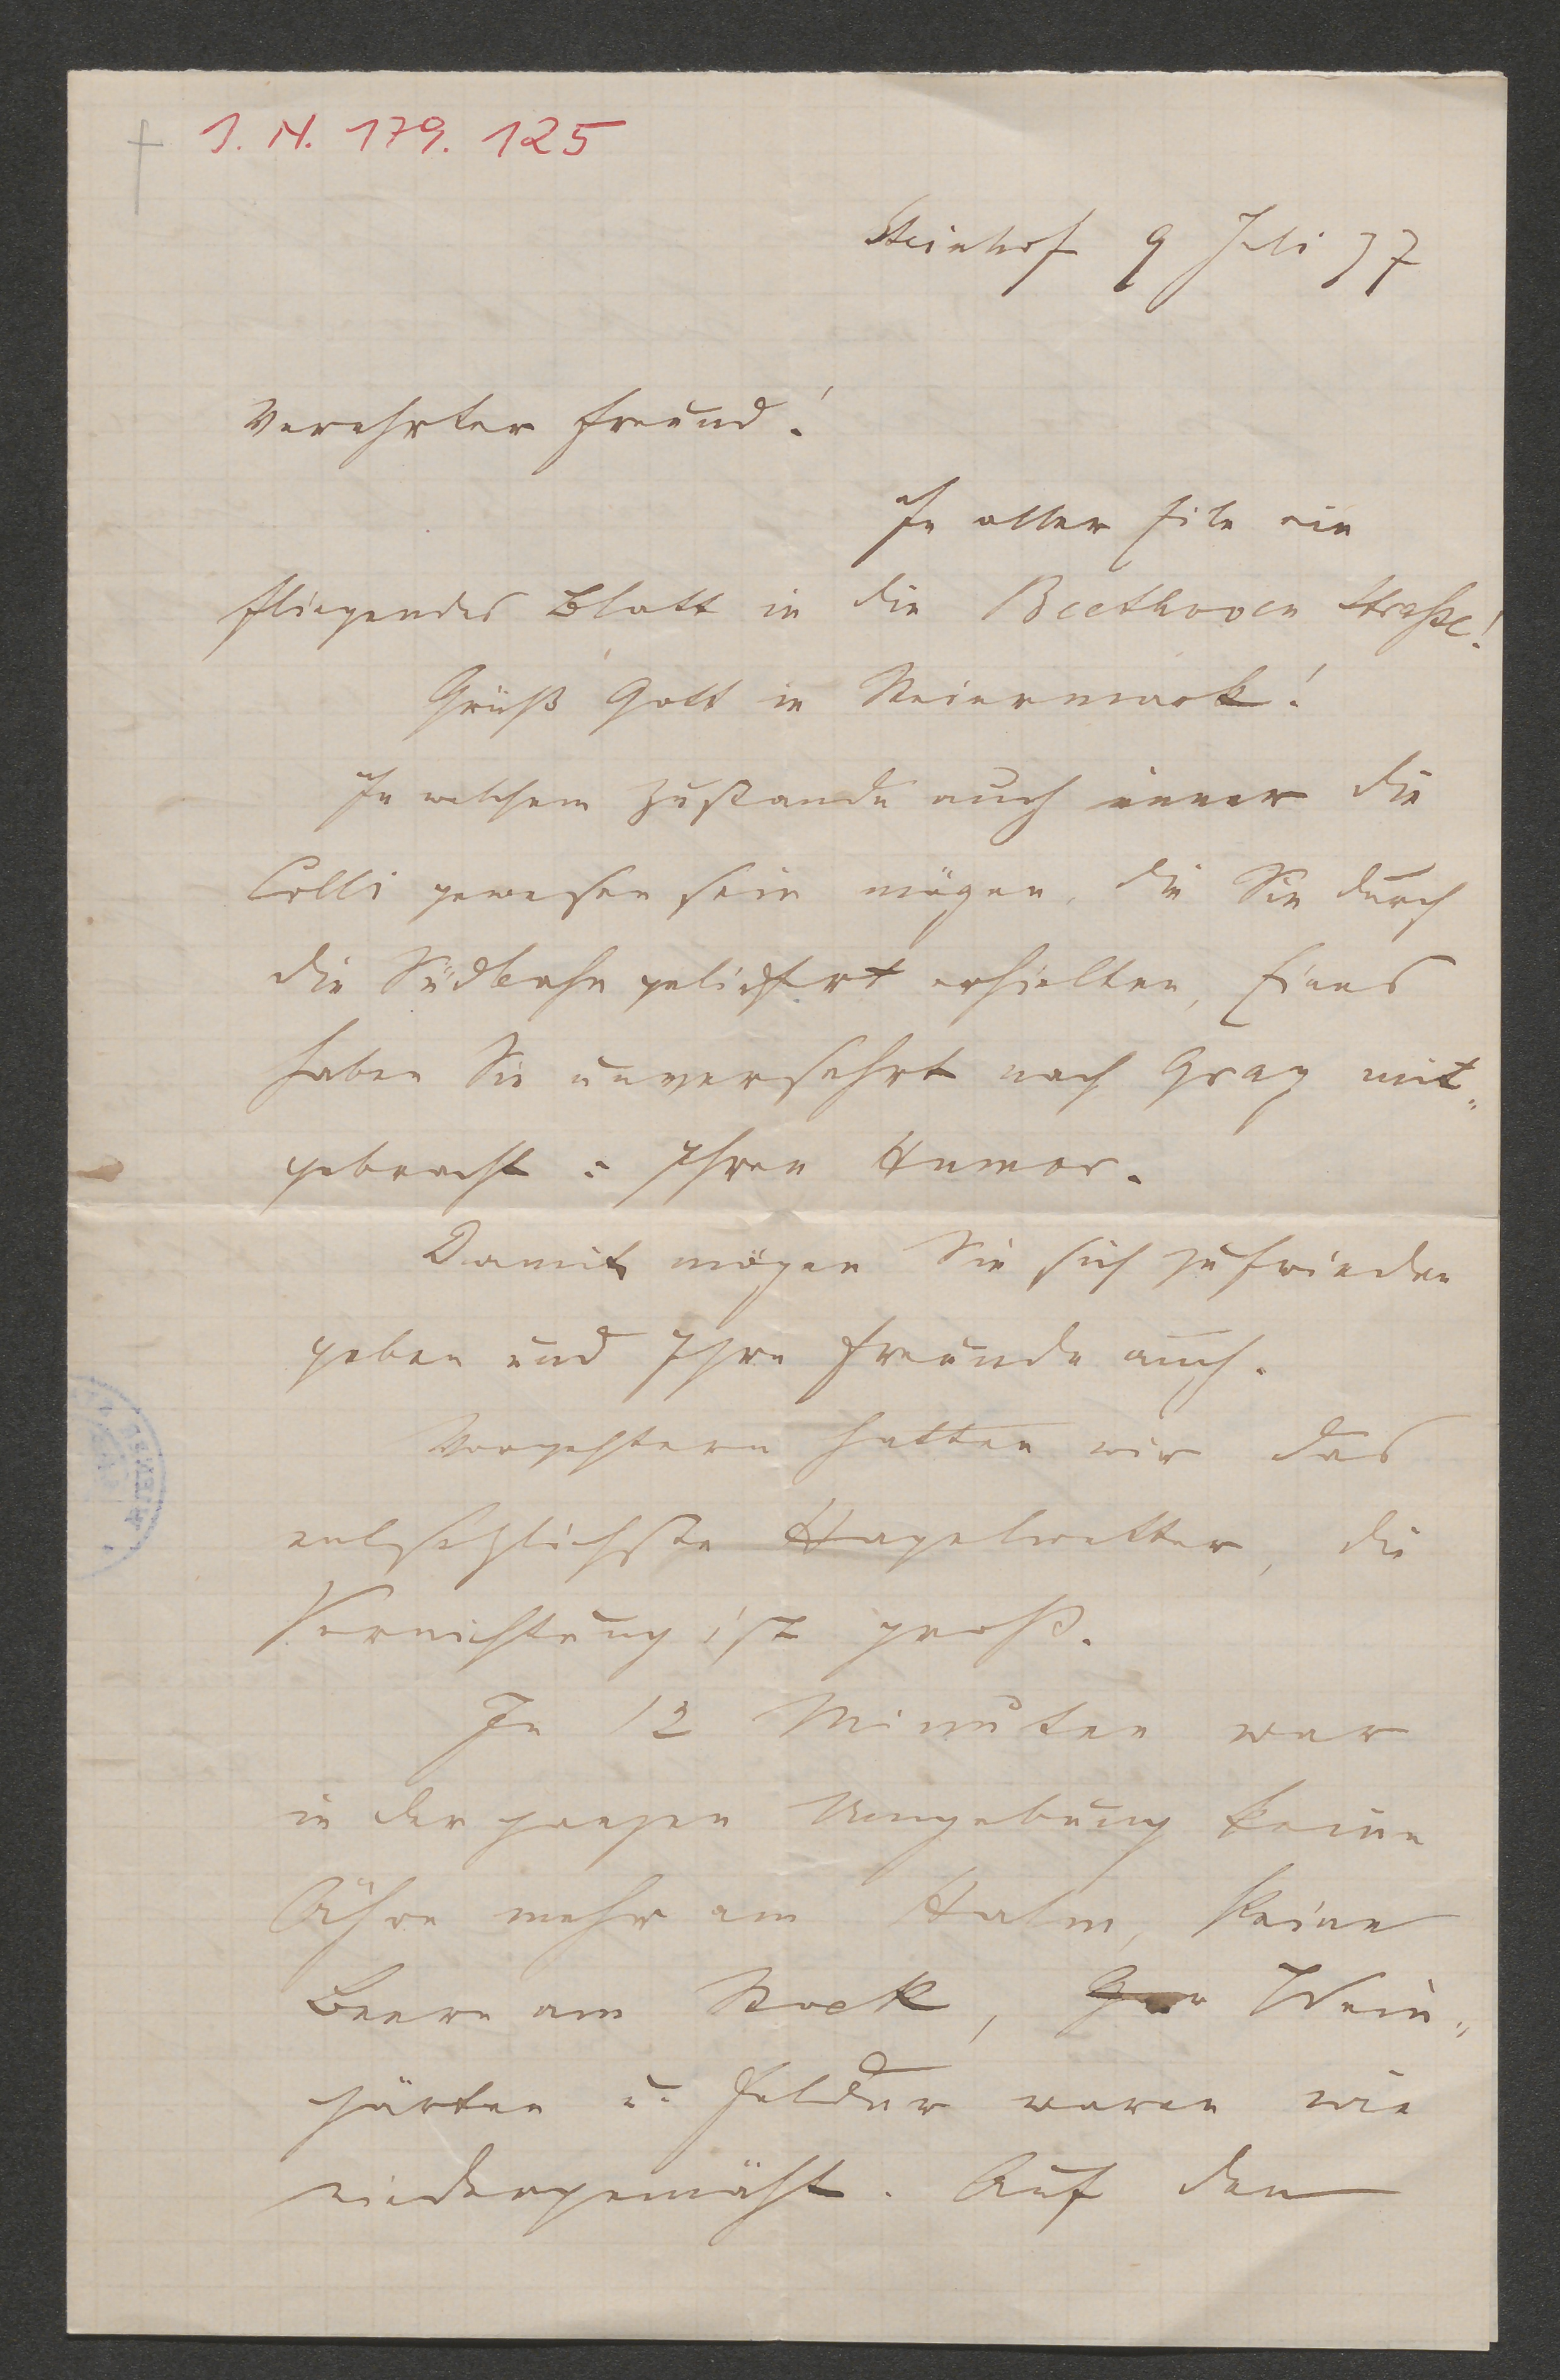 I. N. 179. 125
Steinhof 9 Juli 77
Verehrter Freund!
In aller Eile ein
fliegendes Blatt in die Beethoven Straße!
Grüß Gott in Steiermark!
In welchem Zustande auch immer die
Colli gewesen sein mögen, die Sie durch
die Südbahn geliefert erhielten, Eines
haben Sie unversehrt nach Graz mit„
gebracht: Ihren Humor.
Damit mögen Sie sich zufrieden
geben und Ihre Freunde auch.
Vorgestern hatten wir das
entsetzlichste Hagelwetter, die
Vernichtung ist groß.
In 12 Minuten war
in der ganzen Umgebung keine
Ähre mehr am Halm, keine
Beere am Stock, Wein„
gärten u. Felder waren wie
niedergemäht. Auf den